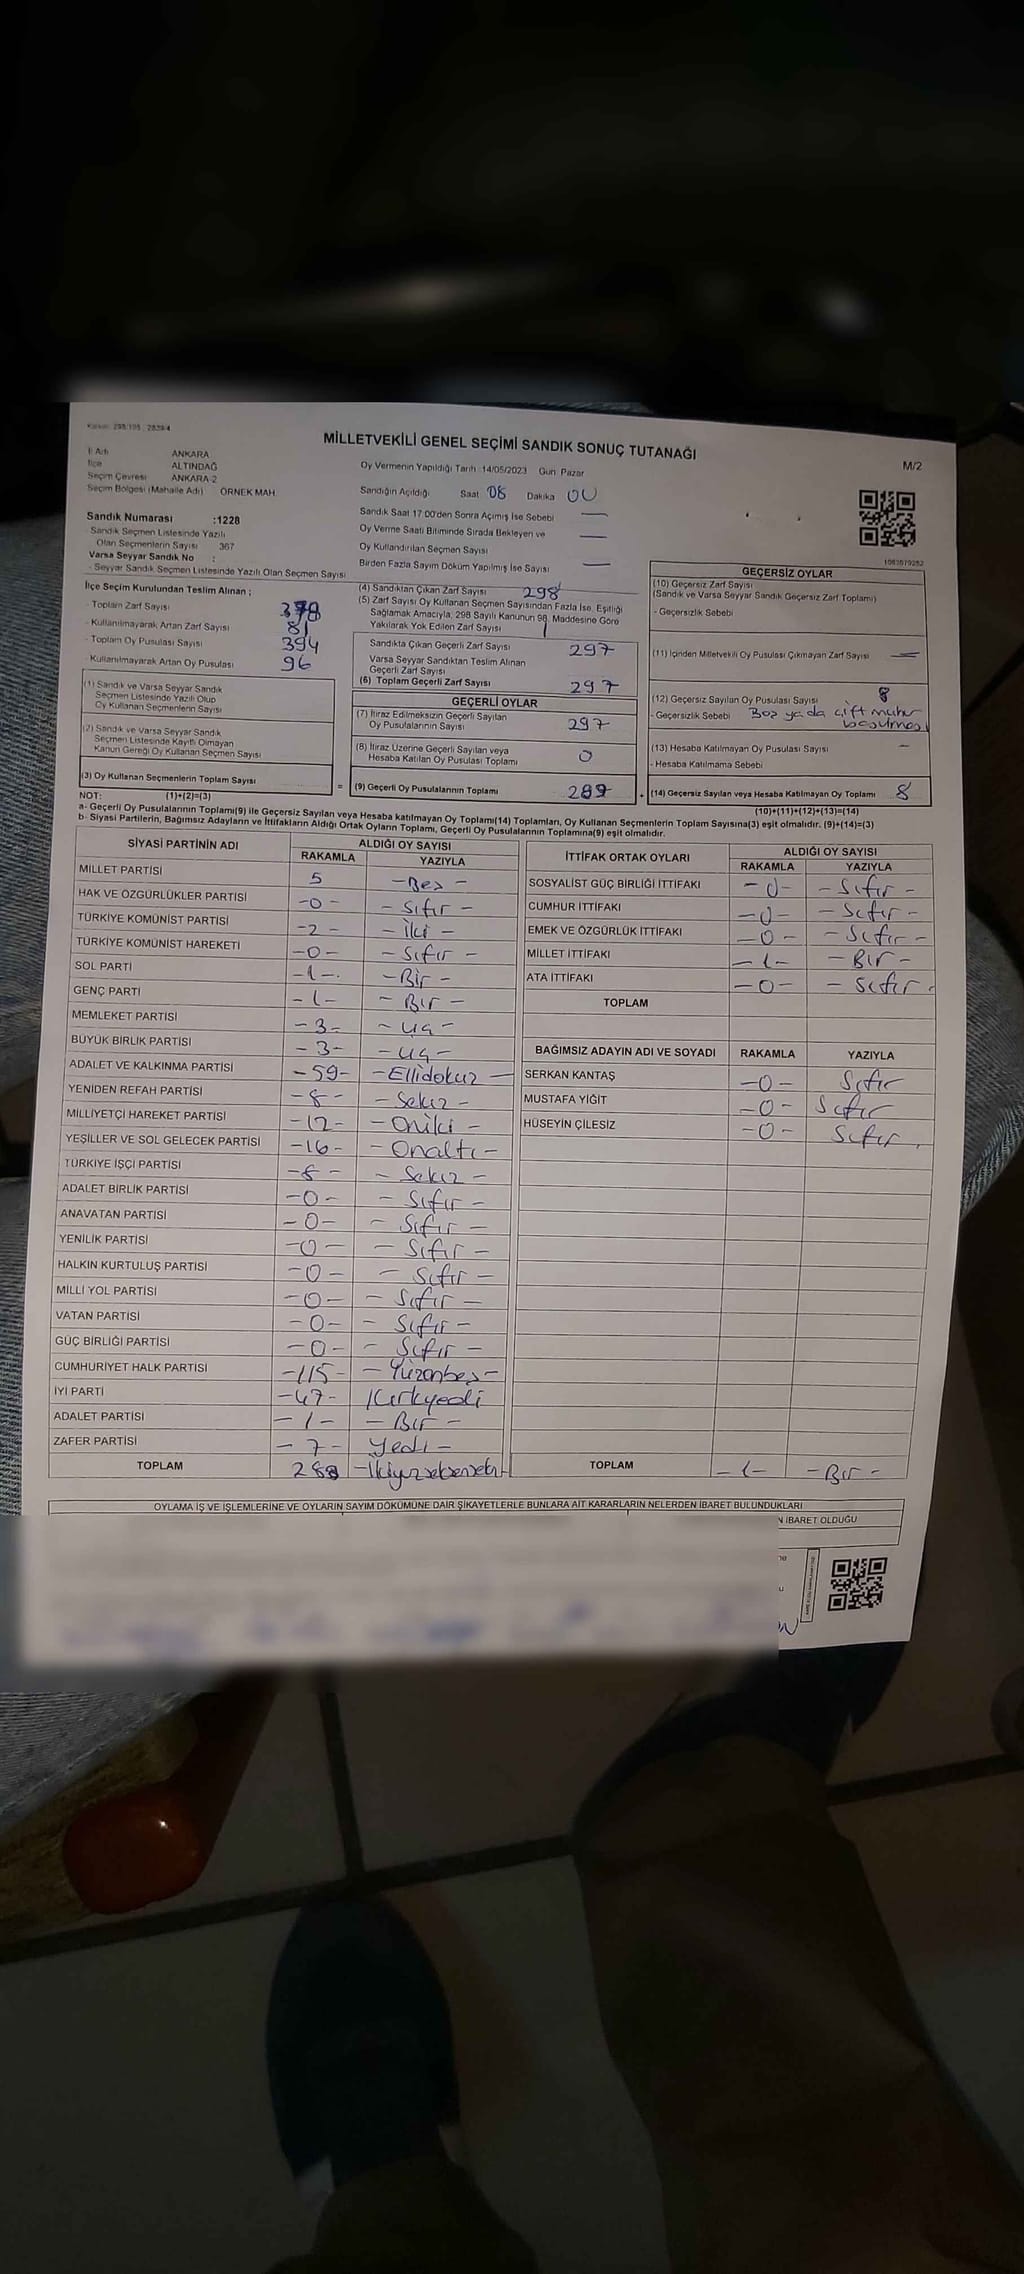 MİLLETVEKİLİ GENEL SEÇİMİ SANDIK SONUÇ TUTANAĞI
M/2
İl Adı ANKARA
İlçe ALTINDAĞ
Seçim Çevresi ANKARA-2
Seçim Bölgesi (Mahalle Adı) ÖRNEK MAH.
Oy Vermenin Yapıldığı Tarih :14/05/2023 Gün: Pazar
Sandığın Açıldığı Saat 08 Dakika 00
Sandık Saat 17:00'den Sonra Açımış İse Sebebi —
Oy Verme Saati Bitiminde Sırada Bekleyen ve —
Oy Kullandırılan Seçmen Sayısı
Birden Fazla Sayım Döküm Yapılmış İse Sayısı —
Sandık Numarası :1228
Sandık Seçmen Listesinde Yazılı
Olan Seçmenlerin Sayısı 367
Varsa Seyyar Sandık No :
- Seyyar Sandık Seçmen Listesinde Yazılı Olan Seçmen Sayısı
İlçe Seçim Kurulundan Teslim Alınan ;
- Toplam Zarf Sayısı
- Kullanılmayarak Artan Zarf Sayısı 81
- Toplam Oy Pusulası Sayısı 394
- Kullanılmayarak Artan Oy Pusulası 96
(1) Sandık ve Varsa Seyyar Sandık
Seçmen Listesinde Yazılı Olup
Oy Kullanan Seçmenlerin Sayısı
(2) Sandık ve Varsa Seyyar Sandık
Seçmen Listesinde Kayıtlı Olmayan
Kanun Gereği Oy Kullanan Seçmen Sayısı
(3) Oy Kullanan Seçmenlerin Toplam Sayısı =
(4) Sandıktan Çıkan Zarf Sayısı 298
(5) Zarf Sayısı Oy Kullanan Seçmen Sayısından Fazla İse, Eşitliği
Sağlamak Amacıyla, 298 Sayılı Kanunun 98. Maddesine Göre
Yakılarak Yok Edilen Zarf Sayısı 1
Sandıkta Çıkan Geçerli Zarf Sayısı 297
Varsa Seyyar Sandıktan Teslim Alınan
Geçerli Zarf Sayısı
(6) Toplam Geçerli Zarf Sayısı 297
GEÇERLİ OYLAR
(7) İtiraz Edilmeksizin Geçerli Sayılan
Oy Pusulalarının Sayısı 297
(8) İtiraz Üzerine Geçerli Sayılan veya
Hesaba Katılan Oy Pusulası Toplamı 0
(9) Geçerli Oy Pusulalarının Toplamı 289 +
GEÇERSİZ OYLAR
(10) Geçersiz Zarf Sayısı
(Sandık ve Varsa Seyyar Sandık Geçersiz Zarf Toplamı)
- Geçersizlik Sebebi
(11) İçinden Milletvekili Oy Pusulası Çıkmayan Zarf Sayısı —
(12) Geçersiz Sayılan Oy Pusulası Sayısı 8
- Geçersizlik Sebebi Boş ya da çift mühür
basılması
(13) Hesaba Katılmayan Oy Pusulası Sayısı -
- Hesaba Katılmama Sebebi
(14) Geçersiz Sayılan veya Hesaba Katılmayan Oy Toplamı 8
NOT: (1)+(2)=(3)
(10)+(11)+(12)+(13)=(14)
a- Geçerli Oy Pusulalarının Toplamı(9) ile Geçersiz Sayılan veya Hesaba katılmayan Oy Toplamı(14) Toplamları, Oy Kullanan Seçmenlerin Toplam Sayısına(3) eşit olmalıdır. (9)+(14)=(3)
b- Siyasi Partilerin, Bağımsız Adayların ve İttifakların Aldığı Ortak Oyların Toplamı, Geçerli Oy Pusulalarının Toplamına(9) eşit olmalıdır.
SİYASİ PARTİNİN ADI ALDIĞI OY SAYISI
RAKAMLA YAZIYLA
MİLLET PARTİSİ 5 -Beş-
HAK VE ÖZGÜRLÜKLER PARTİSİ -0- -Sıfır-
TÜRKİYE KOMÜNİST PARTİSİ -2- -İki-
TÜRKİYE KOMÜNİST HAREKETİ -0- -Sıfır-
SOL PARTİ -1- -Bir-
GENÇ PARTİ -1- -Bir-
MEMLEKET PARTİSİ -3- -Üç-
BÜYÜK BİRLİK PARTİSİ -3- -Üç-
ADALET VE KALKINMA PARTİSİ -59- -Ellidokuz-
YENİDEN REFAH PARTİSİ -8- -Sekiz-
MİLLİYETÇİ HAREKET PARTİSİ -12- -Oniki-
YEŞİLLER VE SOL GELECEK PARTİSİ -16- -Onaltı-
TÜRKİYE İŞÇİ PARTİSİ -8- -Sekiz-
ADALET BİRLİK PARTİSİ -0- -Sıfır-
ANAVATAN PARTİSİ -0- -Sıfır-
YENİLİK PARTİSİ -0- -Sıfır-
HALKIN KURTULUŞ PARTİSİ -0- -Sıfır-
MİLLİ YOL PARTİSİ -0- -Sıfır-
VATAN PARTİSİ -0- -Sıfır-
GÜÇ BİRLİĞİ PARTİSİ -0- -Sıfır-
CUMHURİYET HALK PARTİSİ -115- -Yüzonbeş-
İYİ PARTİ -47- Kırkyedi
ADALET PARTİSİ -1- -Bir-
ZAFER PARTİSİ -7- Yedi-
TOPLAM 288 -İkiyüzseksensekiz-
İTTİFAK ORTAK OYLARI ALDIĞI OY SAYISI
RAKAMLA YAZIYLA
SOSYALİST GÜÇ BİRLİĞİ İTTİFAKI -0- -Sıfır-
CUMHUR İTTİFAKI -0- -Sıfır-
EMEK VE ÖZGÜRLÜK İTTİFAKI -0- -Sıfır-
MİLLET İTTİFAKI -1- -Bir-
ATA İTTİFAKI -0- -Sıfır-
TOPLAM
BAĞIMSIZ ADAYIN ADI VE SOYADI RAKAMLA YAZIYLA
SERKAN KANTAŞ -0- Sıfır
MUSTAFA YİĞİT -0- Sıfır
HÜSEYİN ÇİLESİZ -0- Sıfır
TOPLAM -1- -Bir-
OYLAMA İŞ VE İŞLEMLERİNE VE OYLARIN SAYIM DÖKÜMÜNE DAİR ŞİKAYETLERLE BUNLARA AİT KARARLARIN NELERDEN İBARET BULUNDUKLARI
N İBARET OLDUĞU